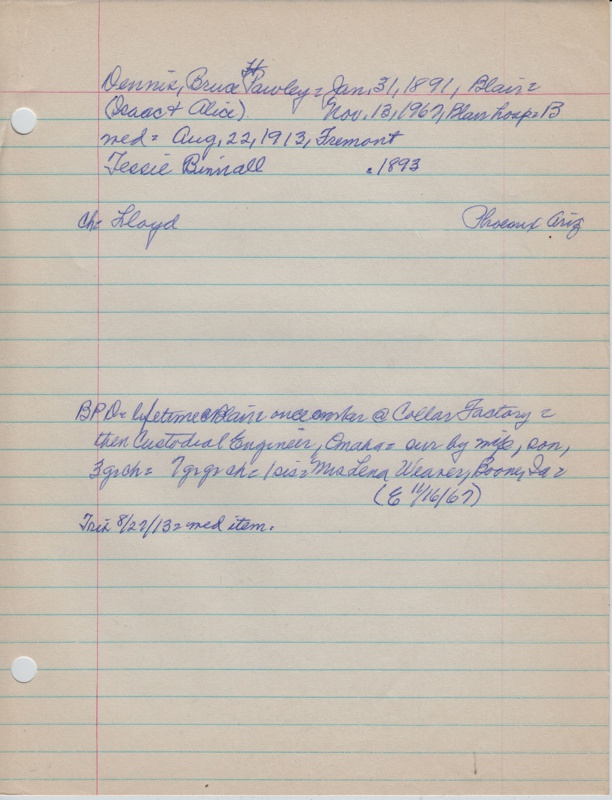 H
Dennis, Bruce Pawley = Jan, 31, 1891, Blair =
(Isaac & Alice). Nov, 13, 1967, Blair hosp = B
wed = Aug, 22, 1913, Fremont
Tessie Binnall . 1893
ch = Lloyd Phoenix Ariz
BPD = lifetime Blair once @ Collar Factory =
then Custodial Engineer, Omaha = sur by wife, son,
3 grch = 7 grgrch = 1 sis = Mrs Lena Weaver, Boone, Ia =
(E 11/16/67)
Trib 8/27/13 = wed item.